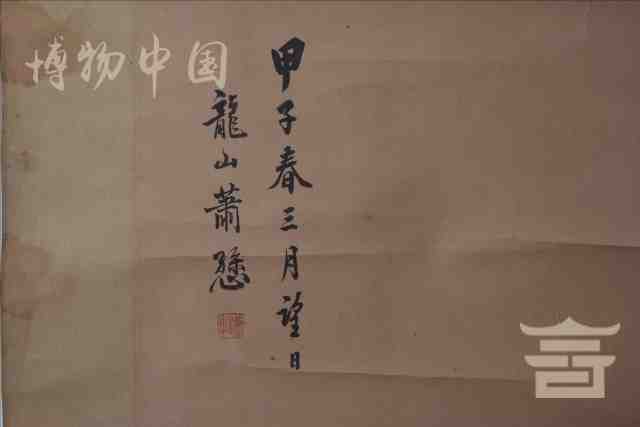 博物中国
甲子春三月望日
龍山蕭愻